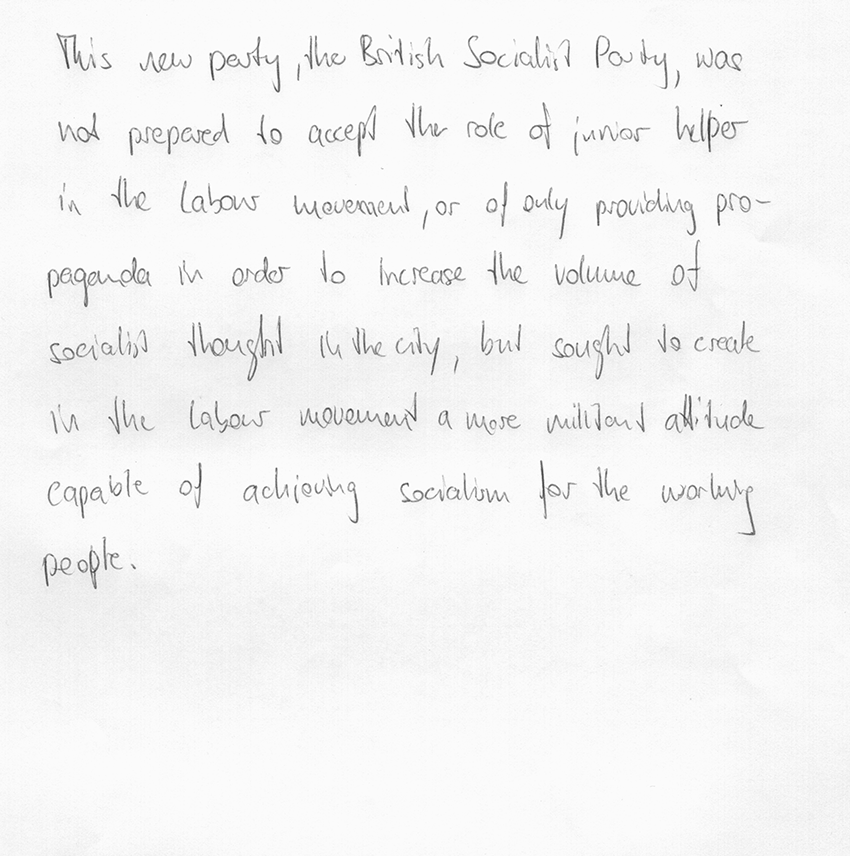 This new party, the British Socialist Party, was
not prepared to accept the role of junior helper
in the Labour movement, or of only providing pro-
paganda in order to increase the volume of
socialist thought in the city, but sought to create
in the Labour movement a more militant attitude
capable of achieving socialism for the working
people.